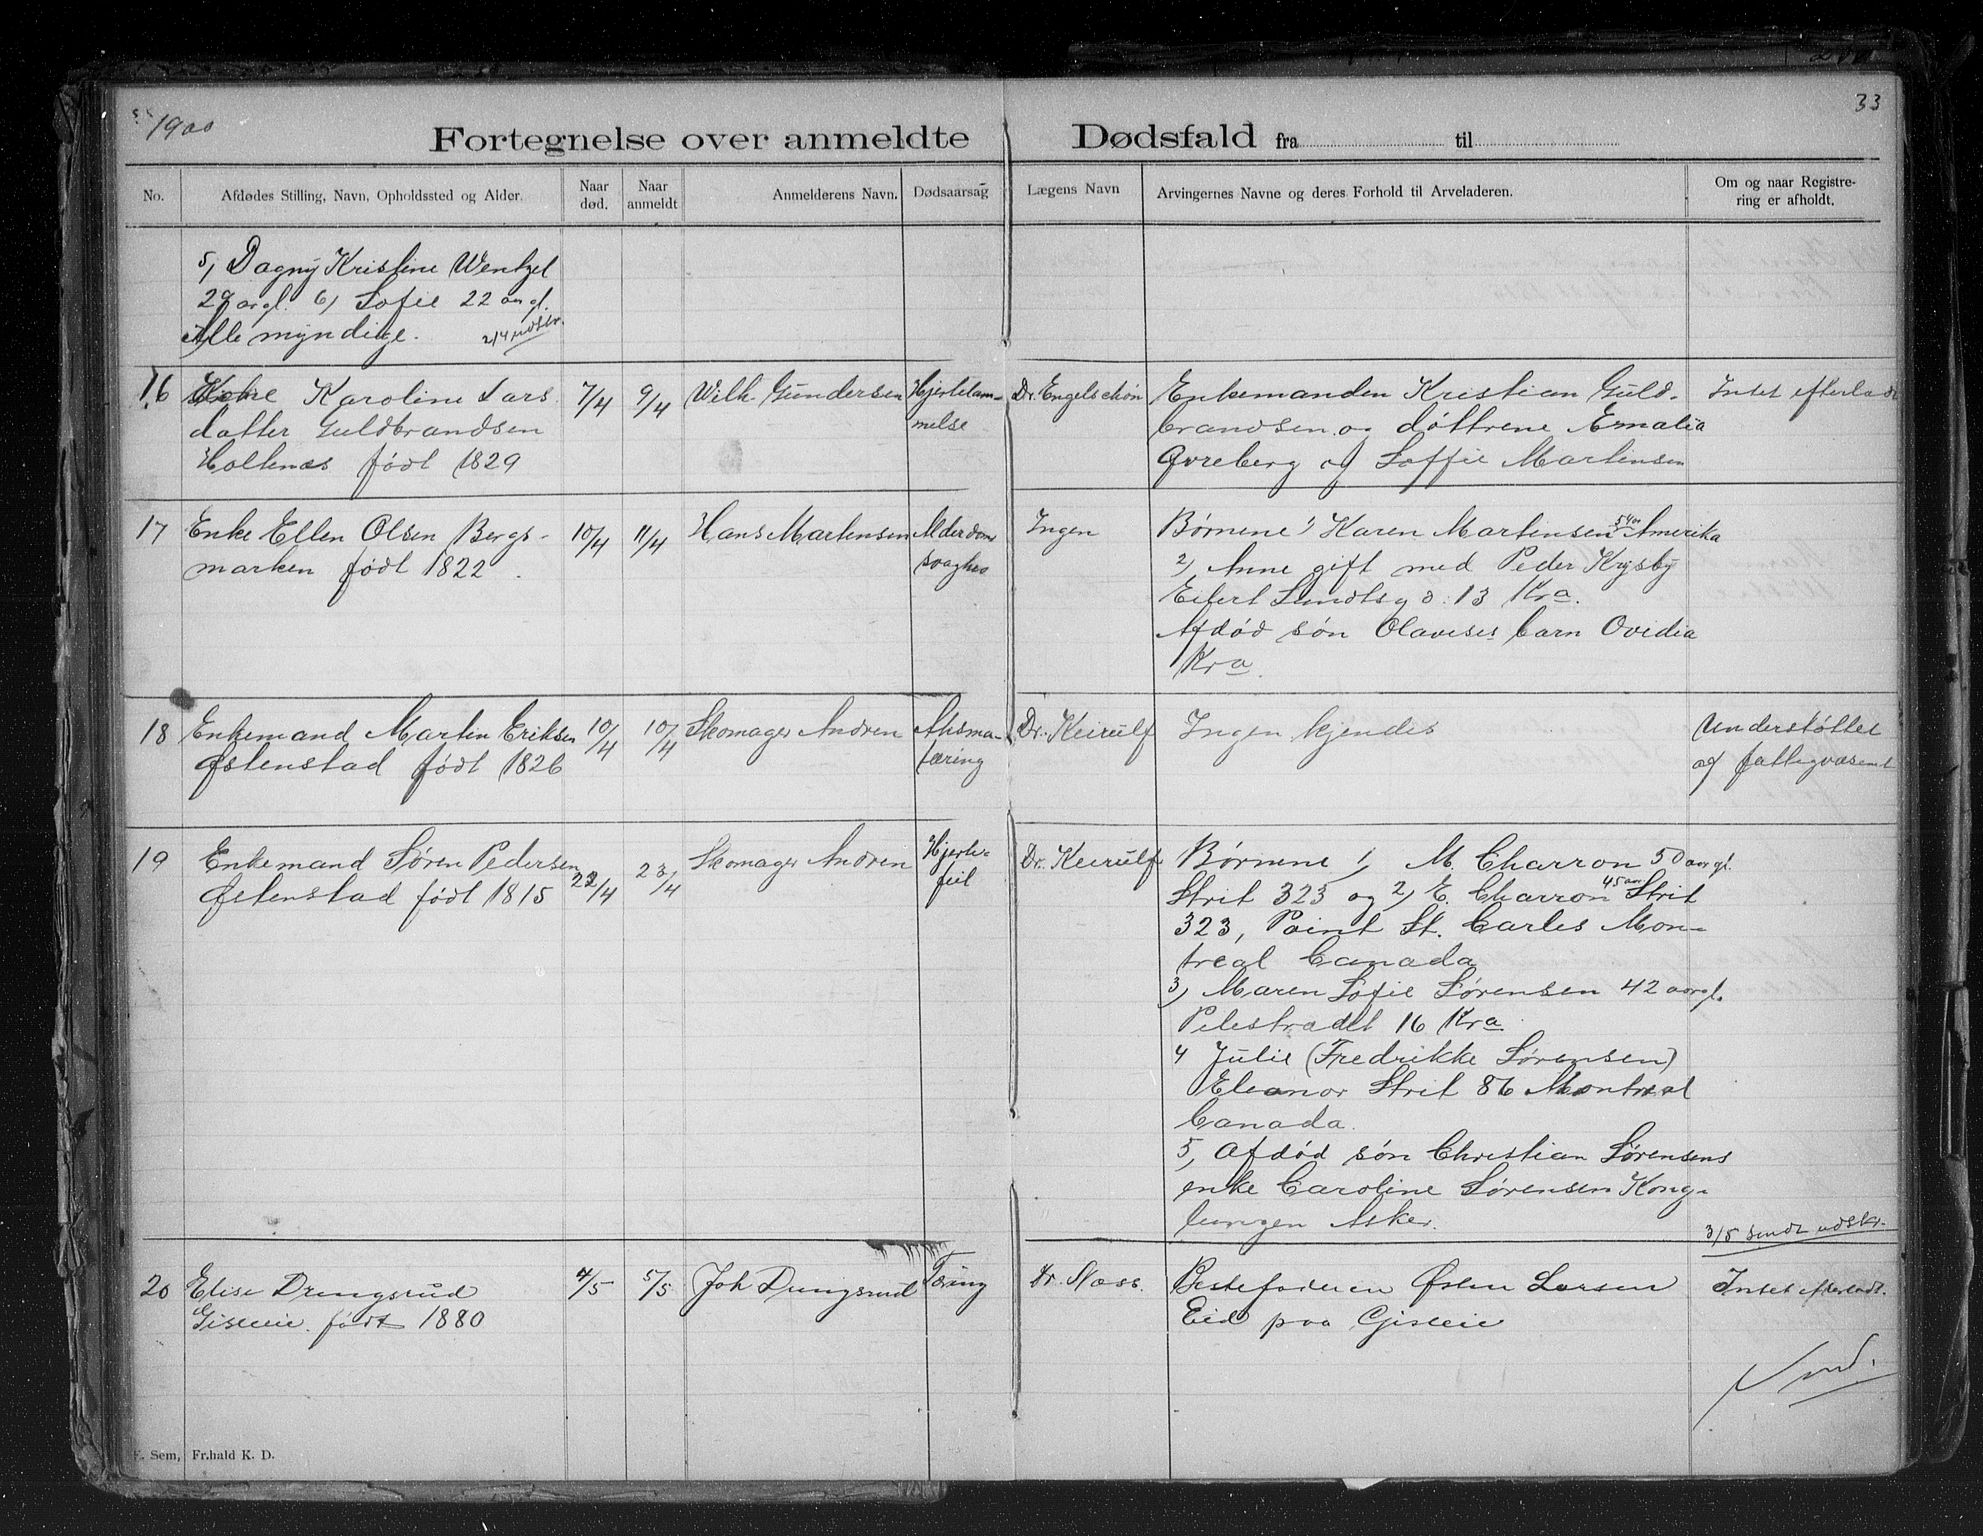 1900
33
Fortegnelse over anmeldte Dødsfald fra til
No. Afdødes Stilling, Navn, Opholdssted og Alder. Naar død. Naar anmeldt Anmelderens Navn. Dødsaarsag Lægens Navn Arvingernes Navne og deres Forhold til Arveladeren. Om og naar Registrering er afholdt.
5, Dagny Kristine Wentzel
29 argl. 6, Sofie 22 aargl.
Alle myndige. 2/4 udskr.
16 Kone Karoline Lars
datter Guldbrandsen
Holtenæs født 1829
7/4
9/4
Wilh. Gundersen
Hjertelam-
melse
Dr. Engelschøn
Enkemanden Kristian Guld-
brandsen og døttrene Amalia
Qvreberg og Soffie Martensen
Intet efterladt
17 Enke Ellen Olsen Bergs-
marken født 1822.
10/4
11/4
Hans Martensen
Alderdoms
svaghed
Ingen
Børnene 1 Karen Martensen 54 aar Amerika
2, Anne gift med Peder Krysby
Eilert Sundtsgd. 13 Kra.
Afdød søn Olavises barn Ovidia
Kra.
18 Enkemand Marten Eriksen
Østenstad født 1826
10/4
10/4
Skomager Andren
Athsma-
tæring
Dr. Keirulf
Ingen kjendis
Understøttet
af fattigvæsent
19 Enkemand Søren Pedersen
Østenstad født 1815
22/4
23/4
Skomager Andren
Hjerte-
feil
Dr. Keirulf
Børnene 1, M. Charron 50 aargl.
Strit 323 og 2, E. Charron 45 aar Strit
323, Point St. Carles Mon-
treal Canada
3, Maren Sofie Sørensen 42 aargl.
Pelestrædet 16 Kra.
4 Julie (Fredrikke Sørensen)
Eleanor Strit 86 Montreal
Canada.
5, Afdød søn Christian Sørensens
enke Caroline Sørensen Kong-
lungen Asker.
3/5 sendt udskr.
20 Elise Drengsrud
Gisleie født 1880
4/5
5/5
Joh Drengsrud
Tæring
Dr. Næss.
Bestefaderen Østen Larsen
Eid paa Gisleie
Intet efterladt.
F. Sem, Fr.hald K. D.